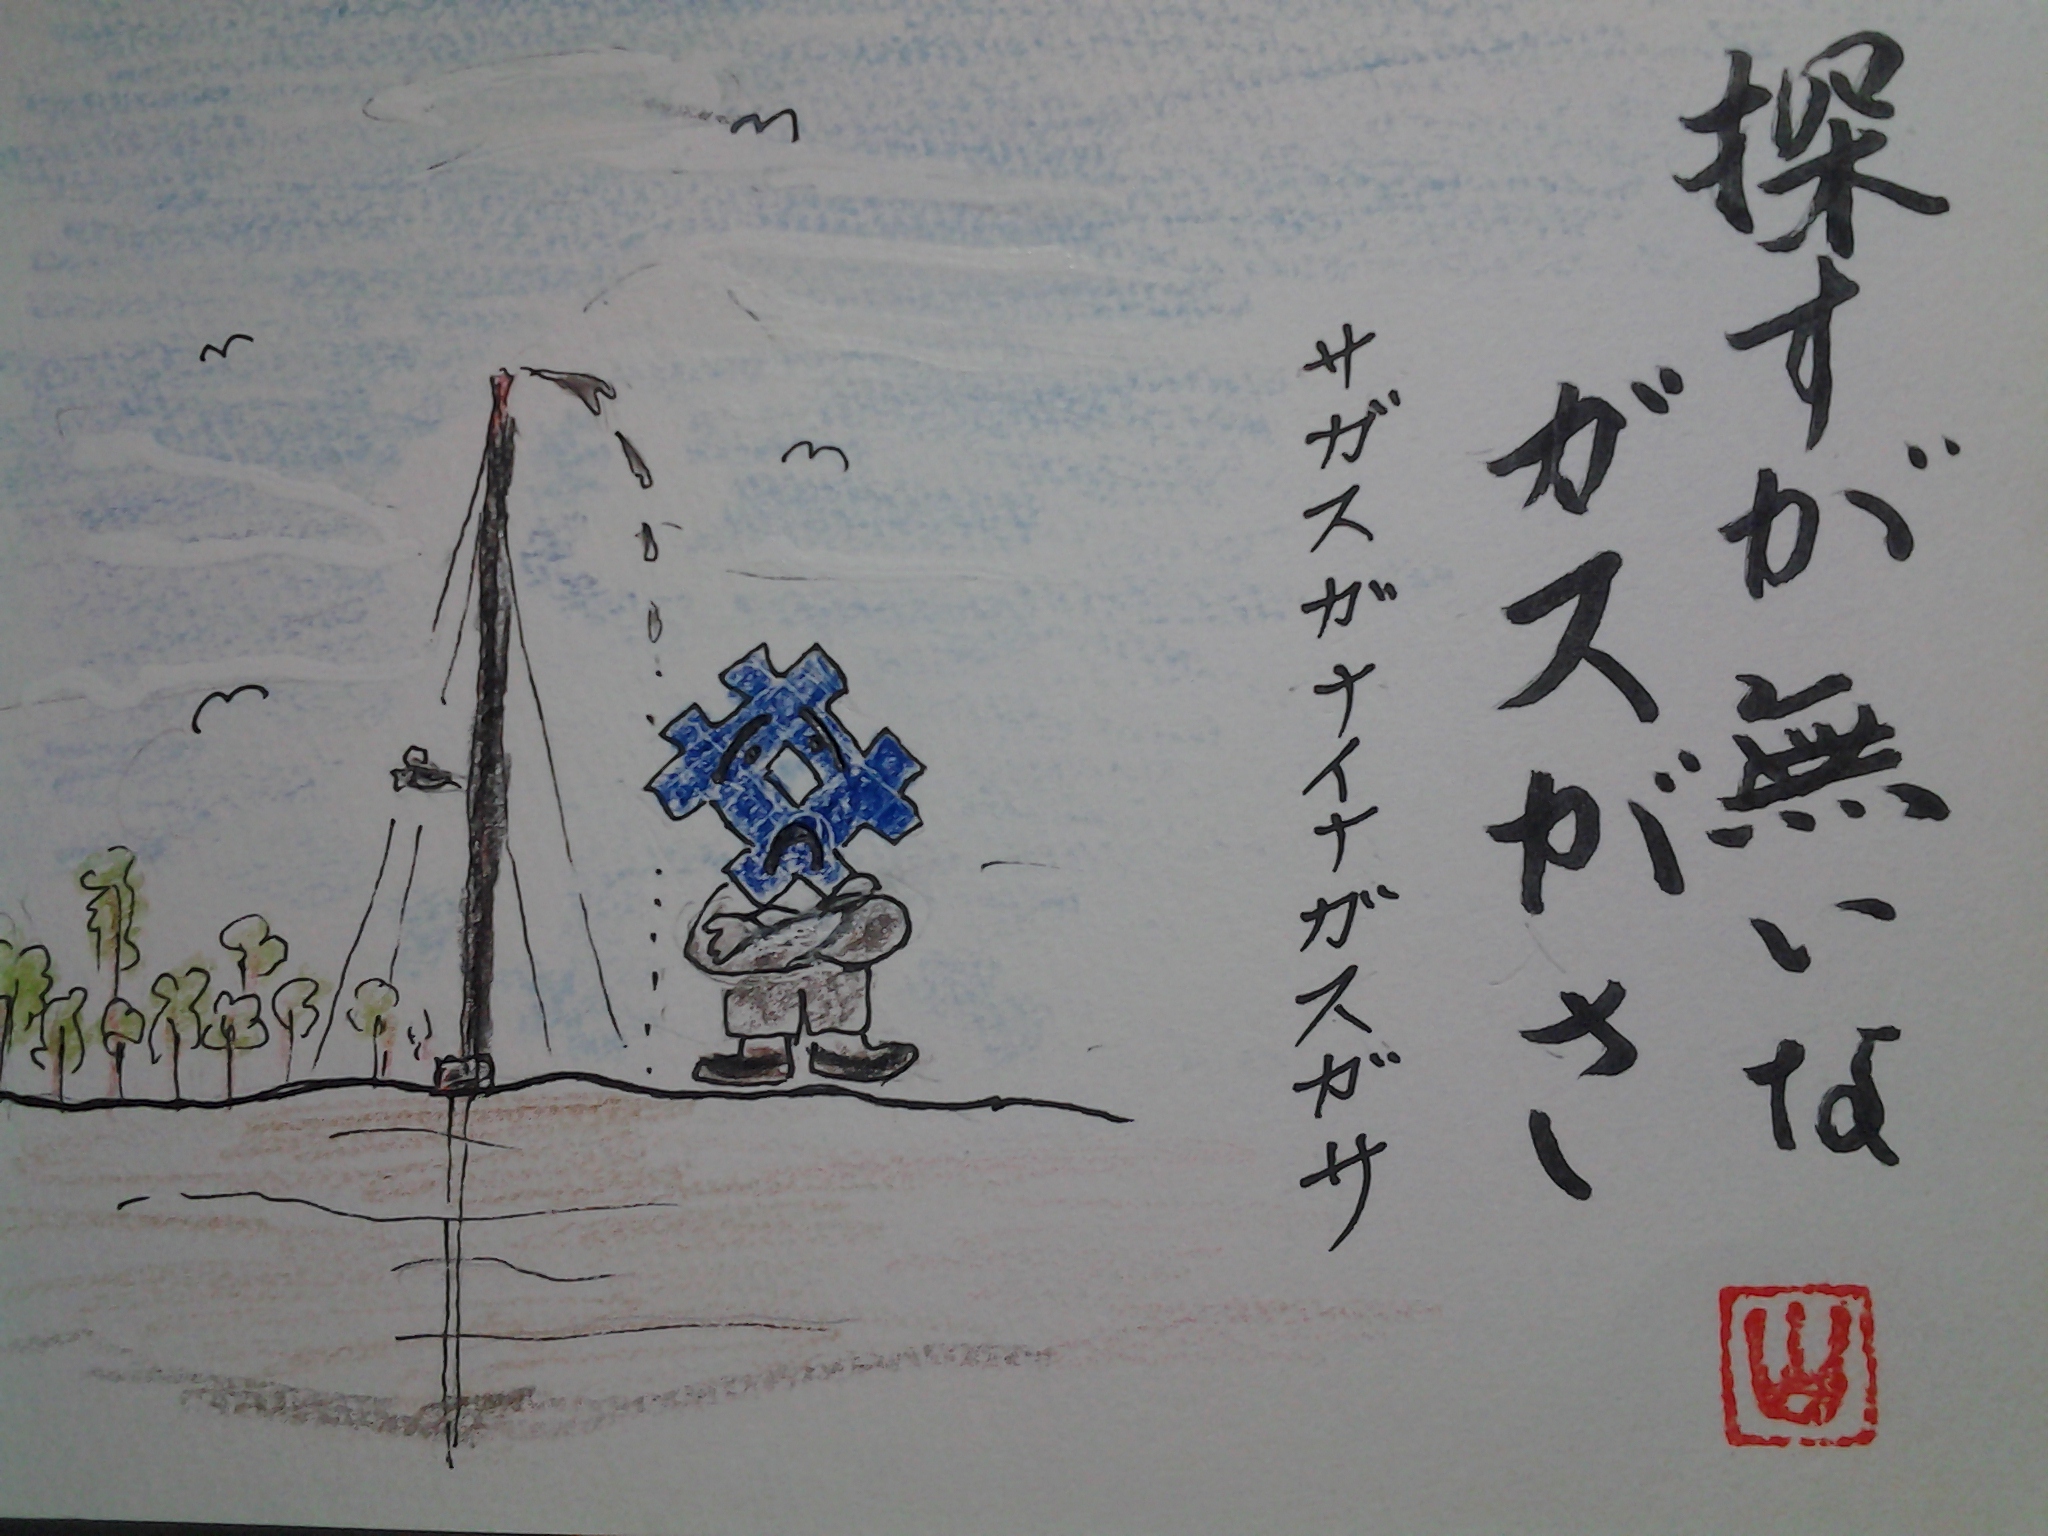 探すが無いな
ガスがさし
サガスガナイナガスガサ
山